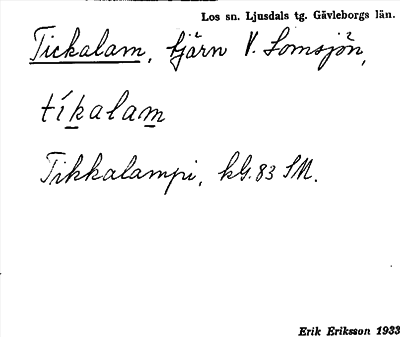 Los sn. Ljusdals tg. Gävleborgs län.
Tickalam, tjärn V. Lomsjön,
tíkalam
Tikkalampi, kG. 83 SM.
Erik Eriksson 1933